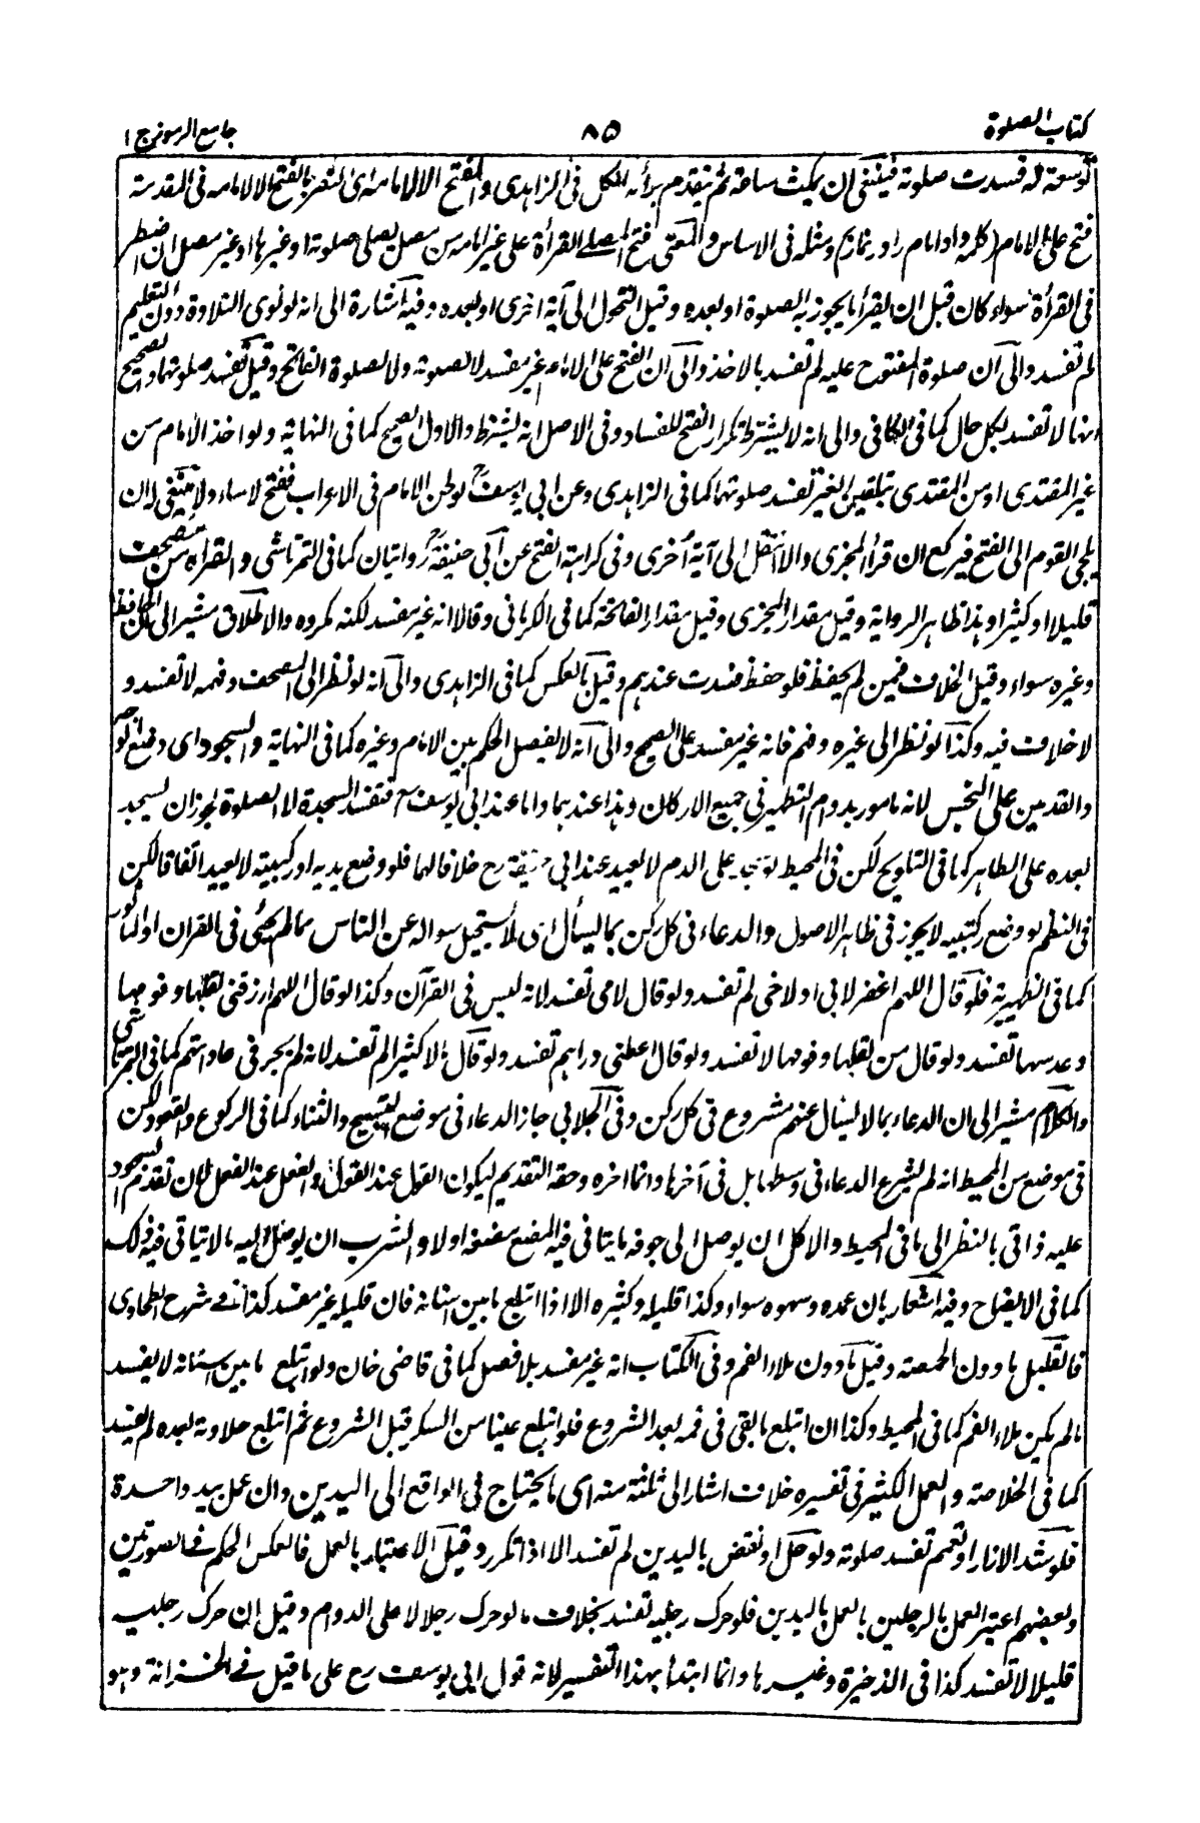 كتاب الصلوة
٨٥
جامع الرموز ج ١
توسعة له فسدت صلوته فينبغى ان يمكث ساعة ثم يتقدم برأيه الكل فى الزاهدى والفتح الا لامامه اى الفتح الا لامامه فى المقدمة
فتح على الامام كلمه واد امام راد ر نماز ومثله فى الاساس والمعنى فتح المصلى القرأة على غير امامه من مصل يصلى صلوته او غيرها او غير مصل ان اضطر
فى القرأة سواء كان قبل ان يقرأ ما يجوز به الصلوة او بعده وقيل التحول الى آية اخرى او بعده وفيه اشارة الى انه لو نوى التلاوة دون التعليم
لم تفسد والى ان صلوة المفتوح عليه لم تفسد بالاخذ والى ان الفتح على الامام غير مفسد لا لصلوته ولا لصلوة الفاتح وقيل تفسد صلوتهما والصحيح
انها لا تفسد بكل حال كما فى الكافى والى انه لا يشترط تكرار الفتح للفساد وفى الاصل انه يشترط والاول الصحيح كما فى النهاية ولو اخذ الامام من
غير المقتدى او من المقتدى بتلقين الغير تفسد صلوتهما كما فى الزاهدى وعن ابى يوسف لو لحن الامام فى الاعراب ففتح لاساء ولا ينبغى له ان
يلجئ القوم الى الفتح فيركع ان قرأ المجزى والا انتقل الى آية اخرى وفى كراهية الفتح عن ابى حنيفة روايتان كما فى التمرتاشى والقراءة من مصحف
قليلا او كثيرا وهذا ظاهر الرواية وقيل مقدار المجزى وقيل مقدار الفاتحة كما فى الكرمانى وقالا انه غير مفسد لكنه مكروه والاطلاق مشير الى ان الحافظ
وغيره سواء وقيل الخلاف فيمن لم يحفظ فلو حفظ فسدت عندهم وقيل بالعكس كما فى الزاهدى والى انه لو نظر الى المصحف وفهمه لا تفسد و
لا خلاف فيه وكذا لو نظر الى غيره وفهم فانه غير مفسد على الصحيح والى انه لا يفصل الحكم بين الامام وغيره كما فى النهاية والسجود اى وضع
والقدمين على النجس لانه مامور بدوام التطهير فى جميع الاركان وهذا عندهما واما عند ابى يوسف رح فتفسد السجدة لا الصلوة فيجوز ان يسجد
بعده على الطاهر كما فى التلويح لكن فى المحيط لو على الدم لا يعيد عند ابى حنيفة رح خلافا لهما فلو وضع يديه او ركبتيه لا يعيد اتفاقا لكن
فى النظم لو وضع ركبتيه لا يجوز فى ظاهر الاصول والدعاء فى كل ركن بما يسأل اى لا يستحيل سواله عن الناس مما لم يجئ فى القران او الماثور
كما فى الظهيرية فلو قال اللهم اغفر لابى او لاخى لم تفسد ولو قال لامى تفسد لانه ليس فى القرآن وكذا لو قال اللهم ارزقنى بقلها وفومها
وعدسها تفسد ولو قال من بقلها وفومها لا تفسد ولو قال اعطنى دراهم تفسد ولو قال مالا كثيرا لم تفسد لانه لم يجر فى عاداتهم كما فى التمرتاشى
والكلام مشير الى ان الدعاء بما لا يسأل عنهم مشروع فى كل ركن وفى الجلابى جاز الدعاء فى موضع التسبيح والثناء كما فى الركوع والقعود لكن
فى موضع من المحيط انه لم يشرع الدعاء فى وسطها بل فى آخرها وانما اخره وحقه التقديم ليكون القول عند القول والفعل عند الفعل لان تقدم السجود
عليه ذاتى بالنظر الى ما فى المحيط والاكل ان يوصل الى جوفه ما يتاتى فيه المضغ مضغه اولا والشرب ان يوصل اليه ما لا يتاتى فيه ذلك
كما فى الايضاح وفيه اشعار بان عمده وسهوه سواء وكذا قليله وكثيره الا اذا ابتلع ما بين اسنانه فان قليله غير مفسد كذا فى شرح الطحاوى
فالقليل ما دون الحمصة وقيل ما دون ملاء الفم وفى الكتاب انه غير مفسد بلا فصل كما فى قاضى خان ولو ابتلع ما بين اسنانه لا يفسد
ما لم يكن ملاء الفم كما فى المحيط وكذا ان ابتلع ما بقى فى فمه بعد الشروع فلو ابتلع عينا من السكر قبل الشروع ثم ابتلع حلاوته بعده لم تفسد
كما فى الخلاصة والعمل الكثير فى تفسيره خلاف اشار الى ثلثة منه اى ما يحتاج فى الواقع الى اليدين وان عمل بيد واحدة
فلو شد الازار او تعمم تفسد صلوته ولو حل او نقض باليدين لم تفسد الا اذا تكرر وقيل الاعتبار بالعمل فالعكس الحكم فى الصورتين
وبعضهم اعتبر العمل بالرجلين بالعمل باليدين فلو حرك رجليه تفسد بخلاف ما لو حرك رجلا لا على الدوام وقيل ان حرك رجليه
قليلا لا تفسد كذا فى الذخيرة وغيرها وانما ابتدأ بهذا التفسير لانه قول ابى يوسف رح على ما قيل فى الخزانة وهو